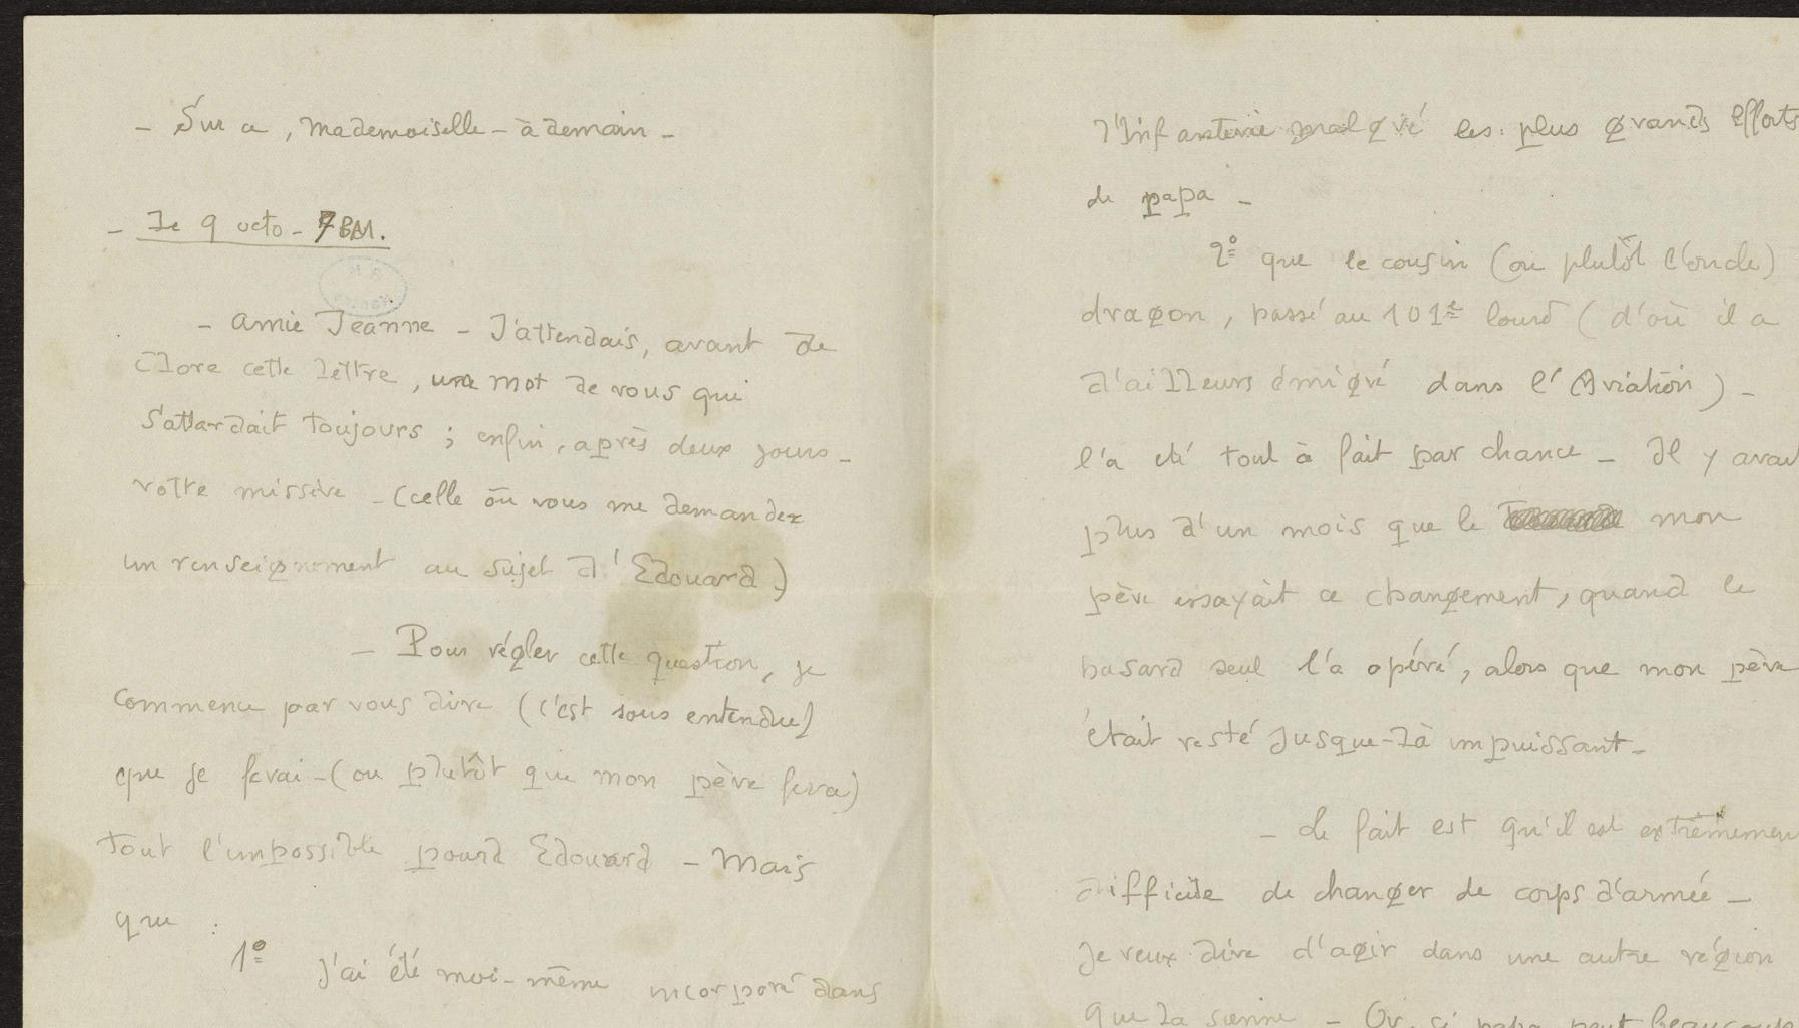 - Sur ce, Mademoiselle - à demain -
- Le 9 octo - 7 
- Amie Jeanne - J'attendais, avant de
clore cette lettre, un mot de vous qui
s'attardait toujours ; enfin, après deux jours -
votre missive - (celle où vous me demandez
un renseignement au sujet d'Edouard)
- Pour régler cette question, je
commence par vous dire (c'est sous entendu)
que je ferai - (ou plutôt que mon père fera)
tout l'impossible pour Edouard - Mais
que :
1º j'ai été moi-même incorporé dans
l'Infanterie malgré les plus grands efforts
de papa -
2º que le cousin (ou plutôt l'oncle)
dragon, passé au 101e lourd (d'où il a
d'ailleurs émigré dans l'Aviation) -
l'a été tout à fait par chance - Il y avait
plus d'un mois que le mon
père essayait ce changement, quand le
hasard seul l'a opéré, alors que mon père
était resté jusque-là impuissant -
- Le fait est qu'il est extrêmemen
difficile de changer de corps d'armée -
Je veux dire d'agir dans une autre région
que la sienne - Or, si papa peut beaucoup